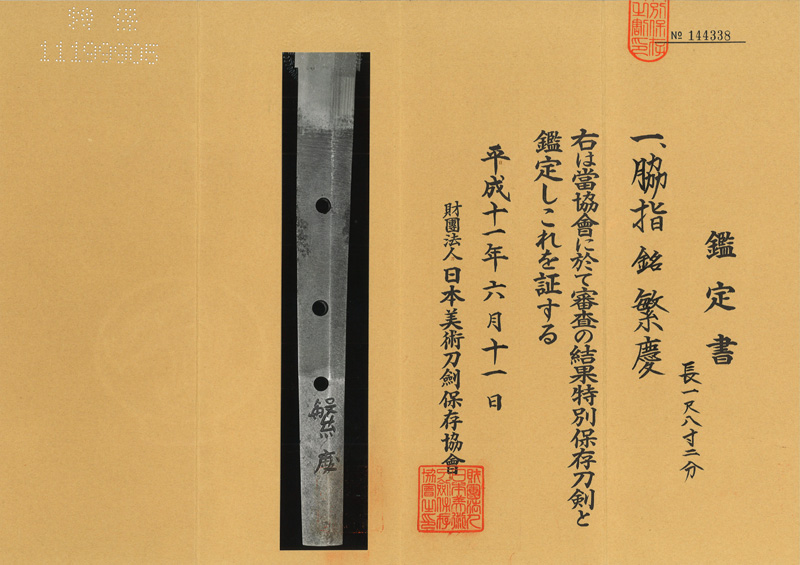 № 144338
鑑定書
一、脇指 銘 繁慶
長一尺八寸二分
右は當協會に於て審査の結果特別保存刀剣と
鑑定しこれを証する
平成十一年六月十一日
財團法人 日本美術刀劍保存協會
繁慶
11199905